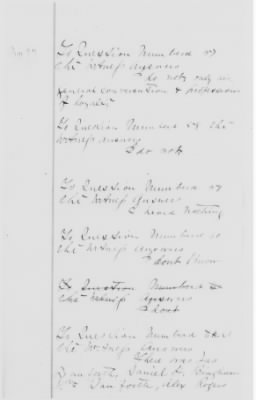 To Question Numberd 27
the Witness answers
I do not only in
general conversation & professions
of loyalty
To Question Numberd 28 the
Witness answers
I do not
To Question Numberd 29
the Witness answers
I heard nothing
To Question Numberd 30
the Witness answers
I dont know
To Question Numberd
the Witness answers
I dont
To Question Numberd
the Witness answers
Danforth, Daniel D. Bingham
Danforth, Alex Rogers